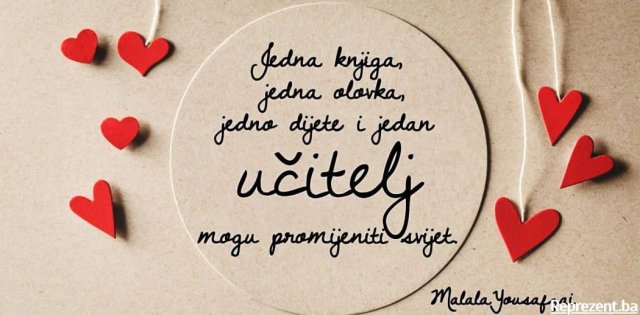 Jedna knjiga,
jedna olovka,
jedno dijete i jedan
učitelj
mogu promijeniti svijet.
Malala Yousafzai
Reprezent.ba